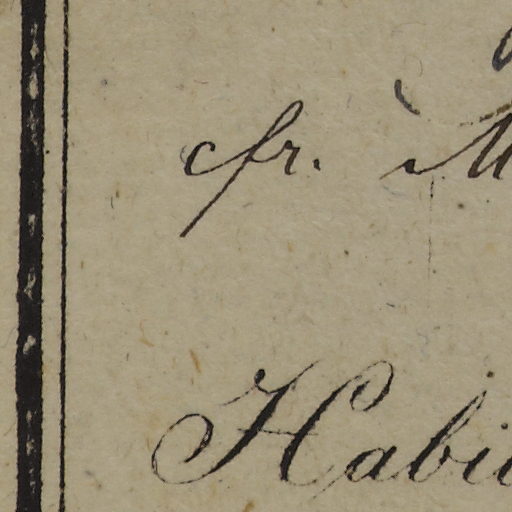 cfr.
Habi